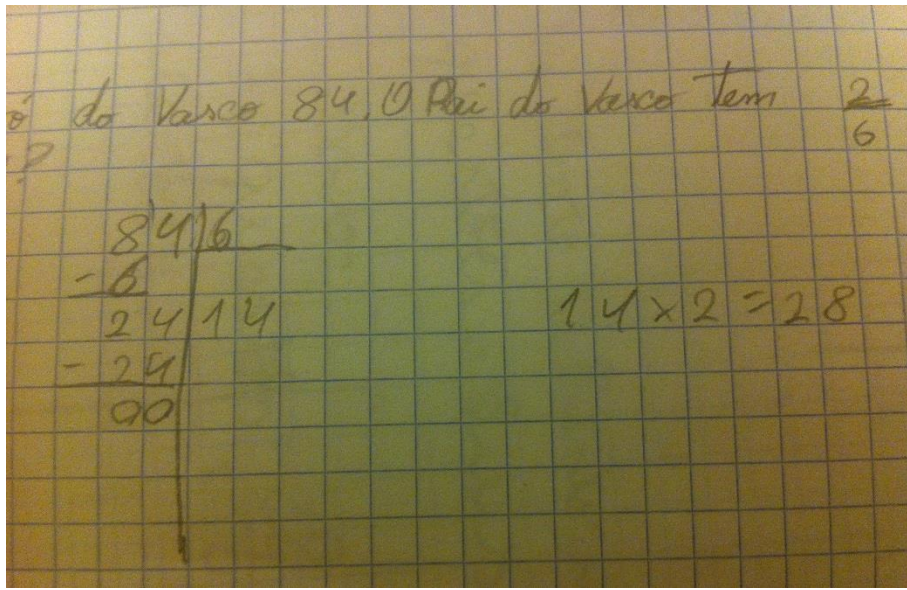 ó do Vasco 84. O Pai do Vasco tem 2/6
?
84 6
- 6
24 14 14 x 2 = 28
- 24
00